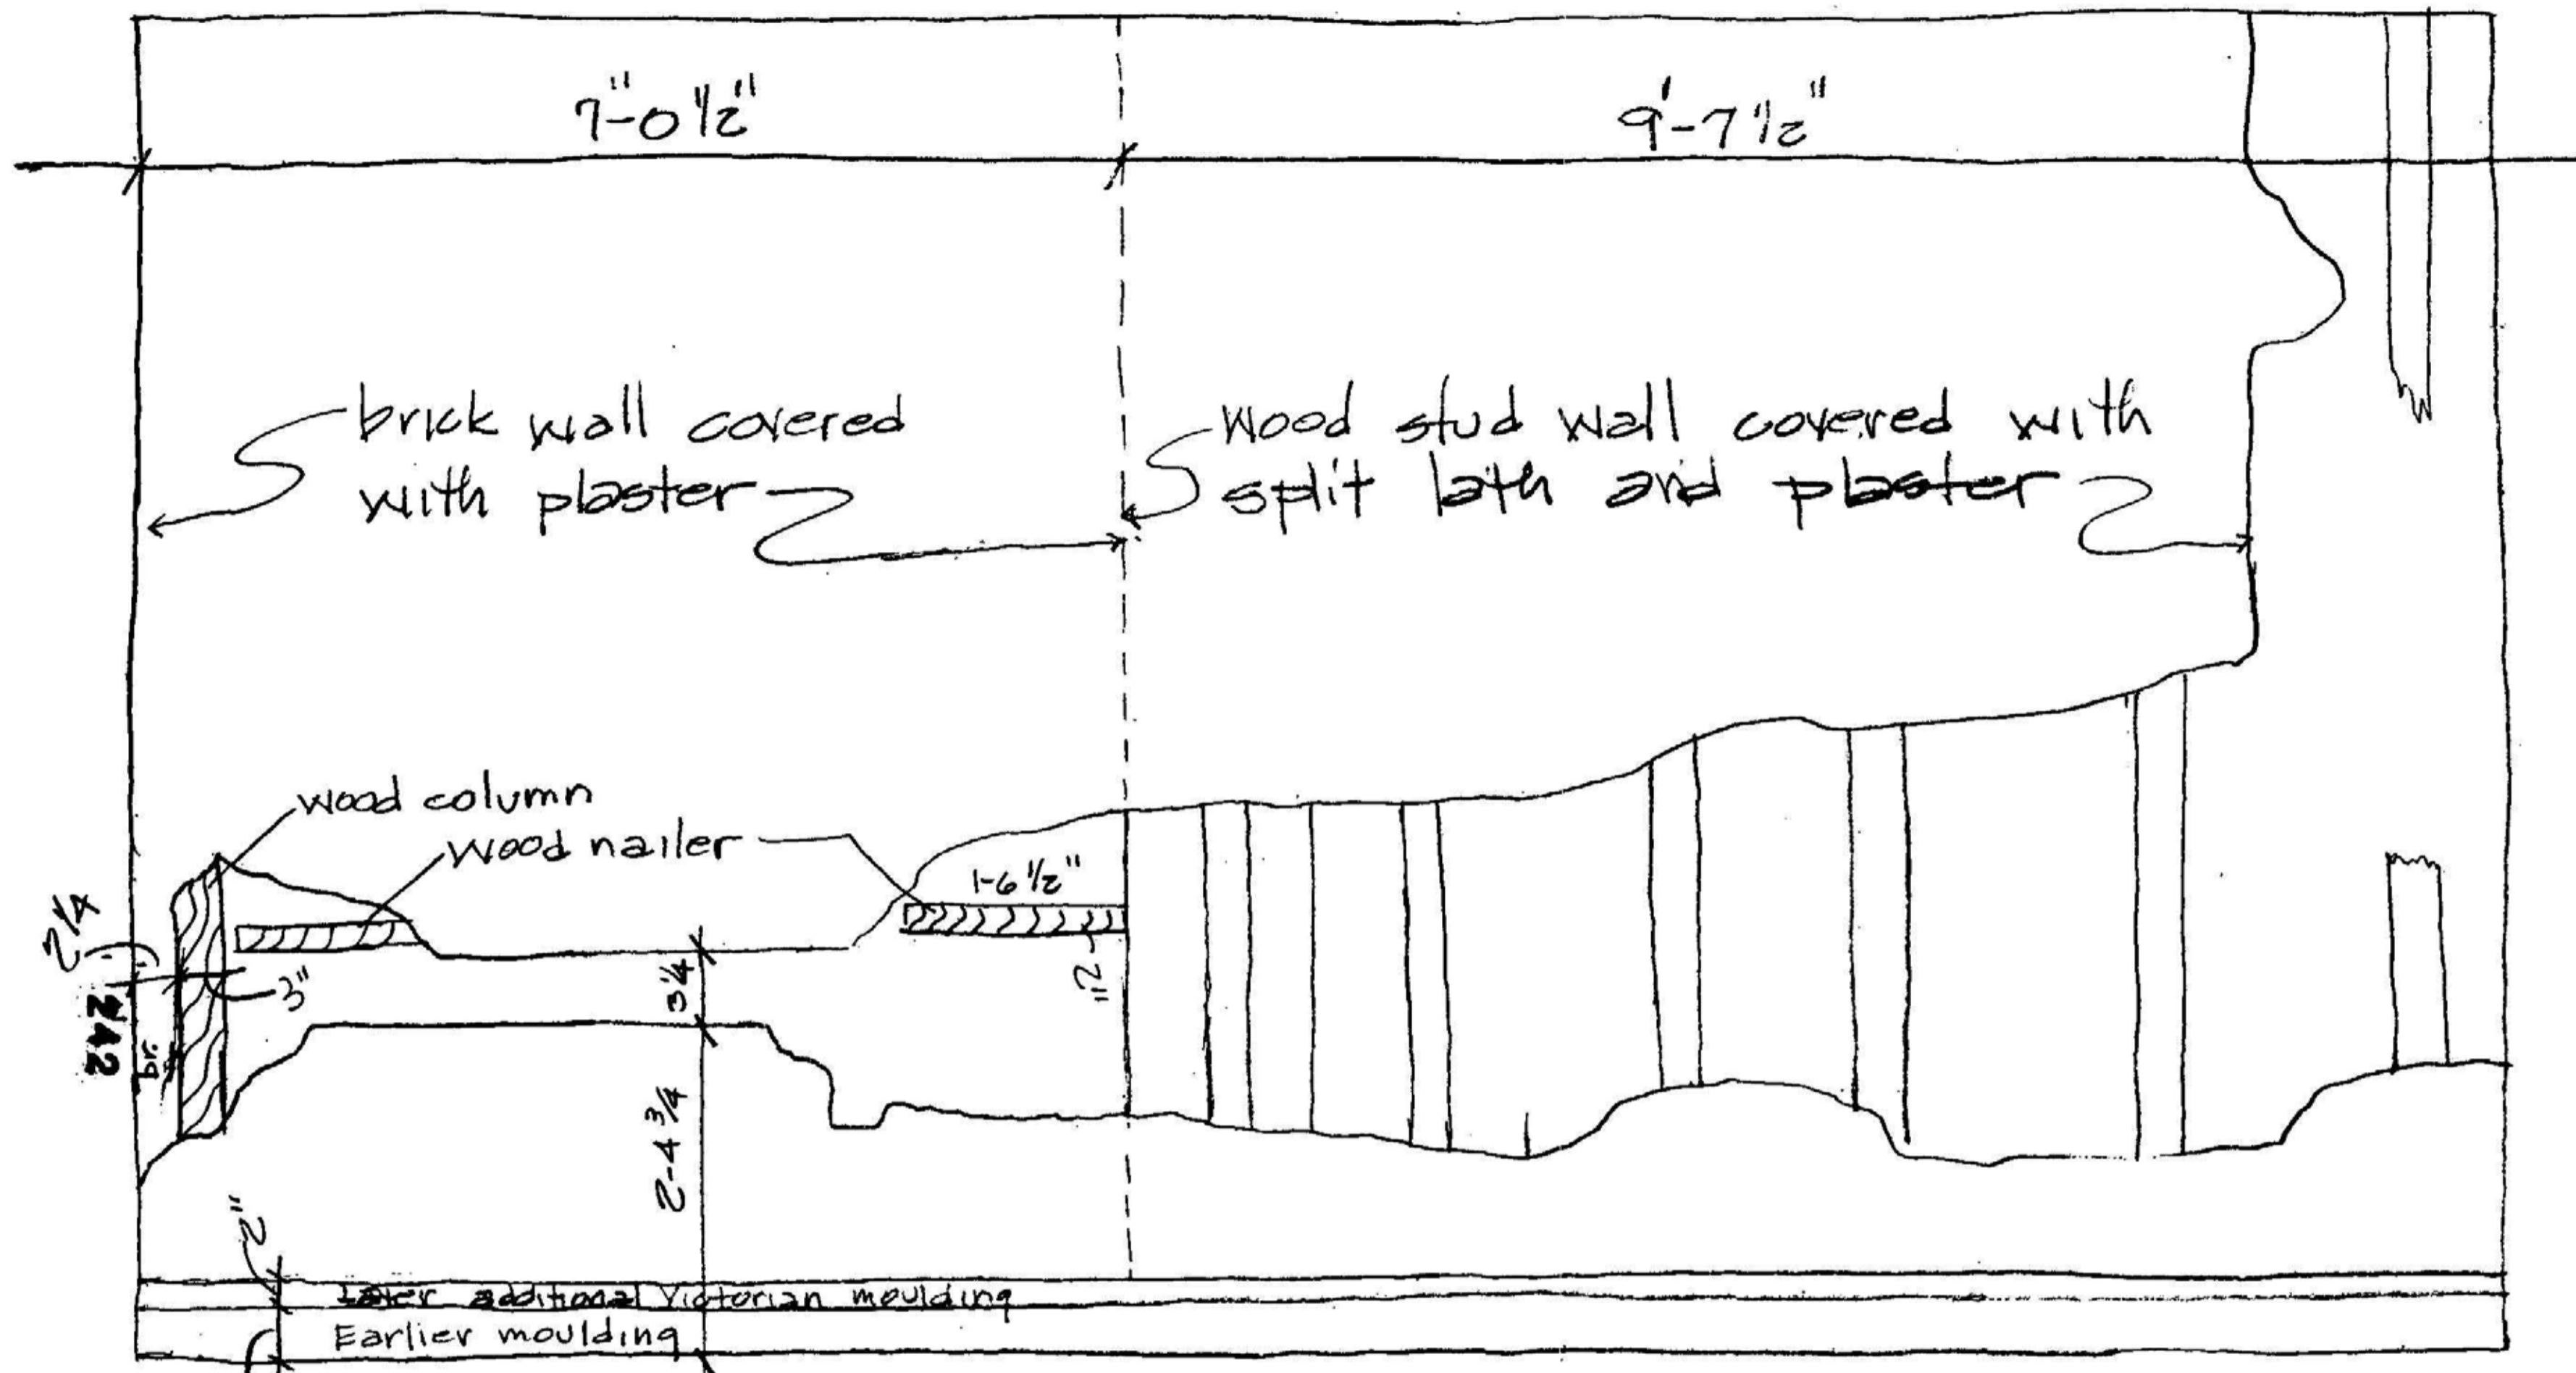 7"-0 1/2"
9'-7 1/2"
brick wall covered
with plaster
wood stud wall covered with
split lath and plaster
wood column
wood nailer
1-6 1/2"
2 1/4
3"
3 1/4
2"
242
br.
2-4 3/4
2"
Later additional Victorian moulding
Earlier moulding